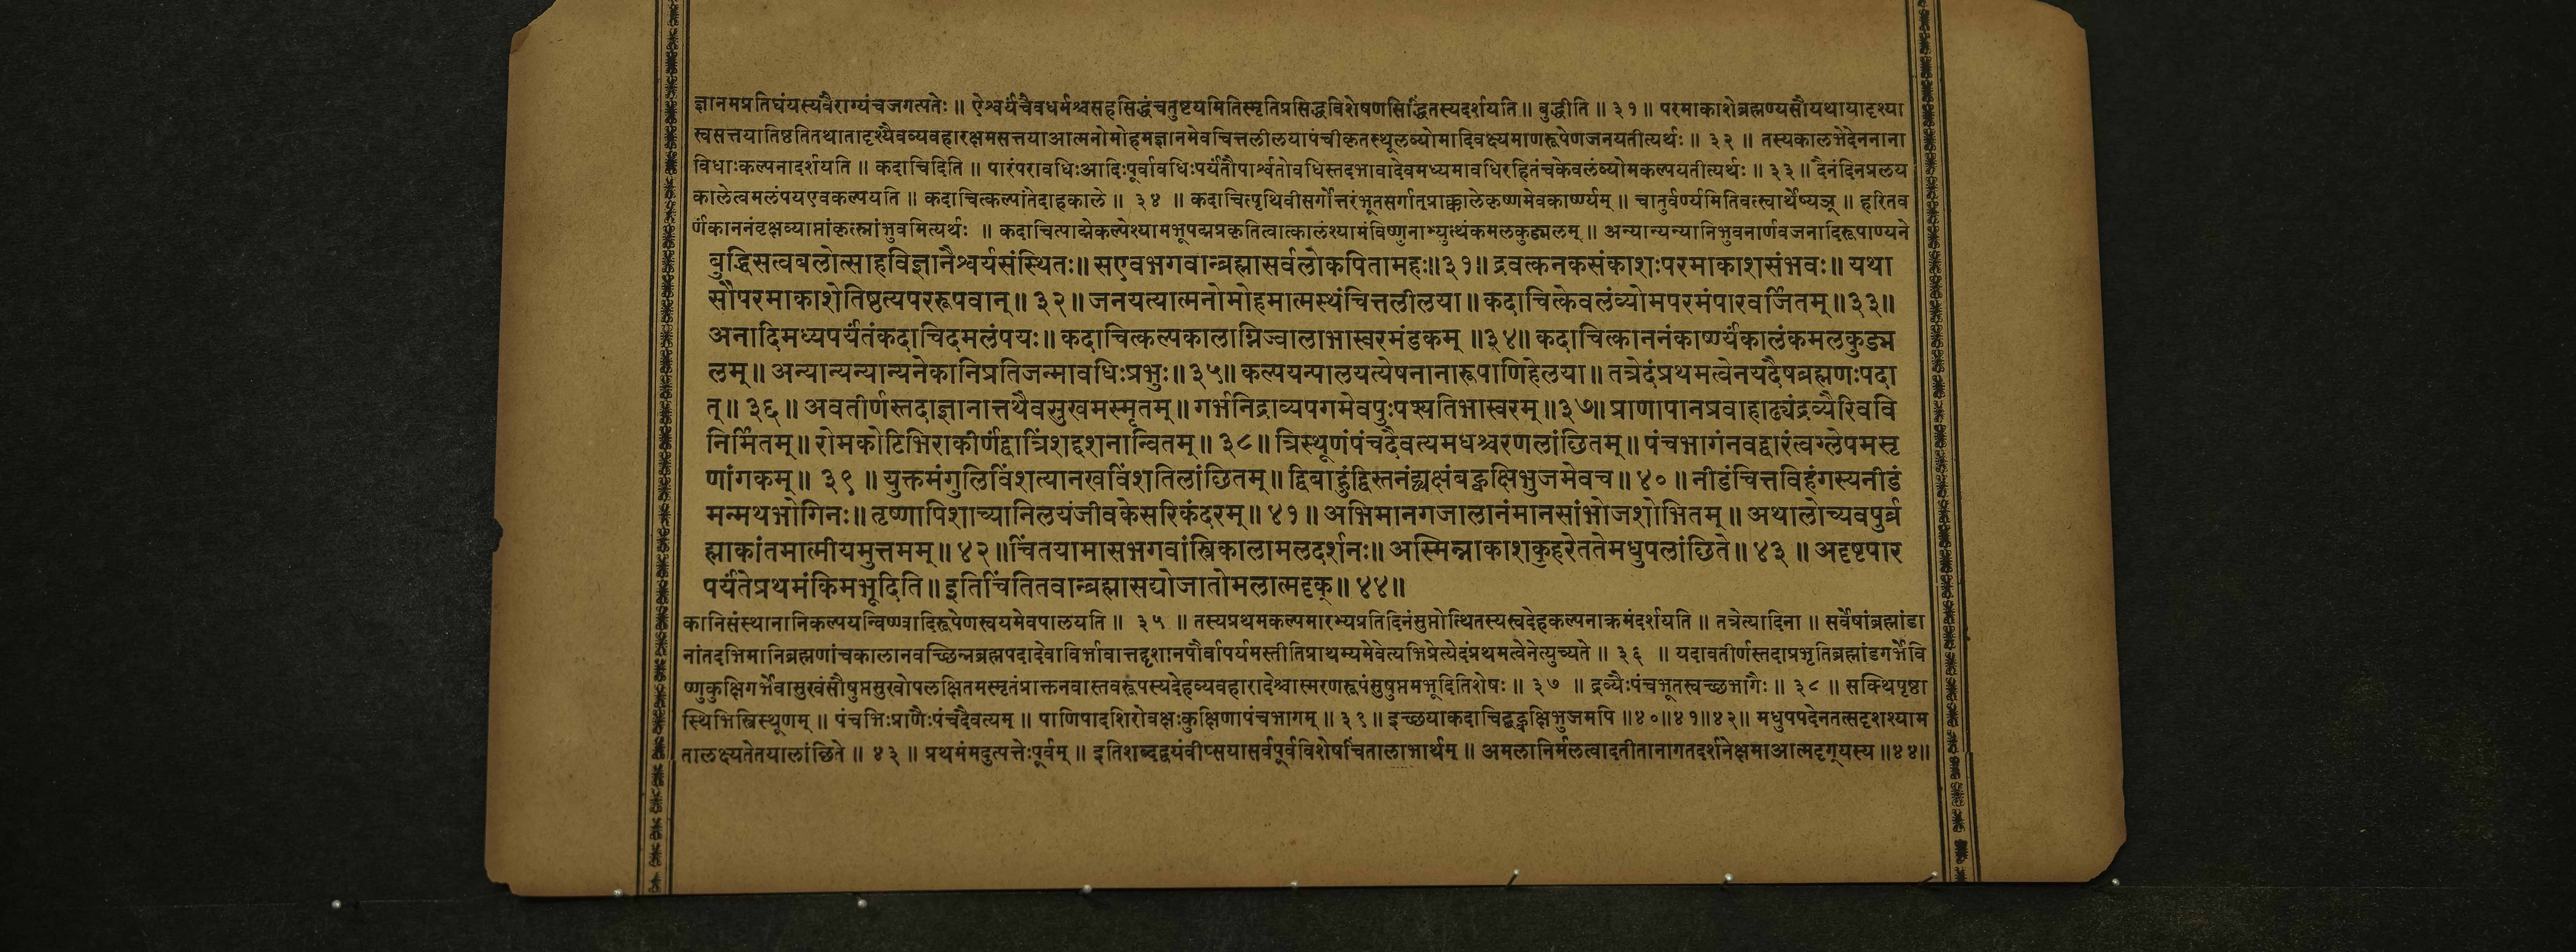 ज्ञानमप्रतिघंयस्यवैराग्यंचजगत्पतेः ॥ ऐश्वर्यंचैवधर्मश्चसहसिद्धंचतुष्टयमितिस्मृतिप्रसिद्धविशेषणसिद्धिंतस्यदर्शयति ॥ बुद्धीति ॥ ३१ ॥ परमाकाशेब्रह्मण्यसौयथायादृश्या
स्वसत्तयातिष्ठतितथातादृश्यैवव्यवहारक्षमसत्तयाआत्मनोमोहमज्ञानमेवचित्तलीलयापंचीकृतस्थूलव्योमादिवक्ष्यमाणरूपेणजनयतीत्यर्थः ॥ ३२ ॥ तस्यकालभेदेननाना
विधाःकल्पनादर्शयति ॥ कदाचिदिति ॥ पारंपरावधिःआदिःपूर्वावधिःपर्यंतौपार्श्वतोवधिस्तदभावादेवमध्यमावधिरहितंचकेवलंव्योमकल्पयतीत्यर्थः ॥ ३३ ॥ दैनंदिनप्रलय
कालेत्वमलंपयएवकल्पयति ॥ कदाचित्कल्पांतेदाहकाले ॥ ३४ ॥ कदाचित्पृथिवीसर्गोत्तरंभूतसर्गात्प्राक्कालेकृष्णमेवकार्ष्ण्यम् ॥ चातुर्वर्ण्यमितिवत्स्वार्थेष्यञ् ॥ हरितव
र्णकाननंवृक्षव्याप्तांकृत्स्नांभुवमित्यर्थः ॥ कदाचित्पाद्मेकल्पेश्यामभूपद्मप्रकृतित्वात्कालंश्यामंविष्णुनाभ्युत्थंकमलकुड्मलम् ॥ अन्यान्यन्यानिभुवनार्णवजनादिरूपाण्यने
बुद्धिसत्वबलोत्साहविज्ञानैश्वर्यसंस्थितः॥ सएवभगवान्ब्रह्मासर्वलोकपितामहः॥३१॥ द्रवत्कनकसंकाशःपरमाकाशसंभवः॥ यथा
सौपरमाकाशेतिष्ठत्यपररूपवान्॥ ३२॥ जनयत्यात्मनोमोहमात्मस्थंचित्तलीलया॥ कदाचित्केवलंव्योमपरमंपारवर्जितम्॥३३॥
अनादिमध्यपर्यंतंकदाचिदमलंपयः॥ कदाचित्कल्पकालाग्निज्वालाभास्वरमंडकम् ॥३४॥ कदाचित्काननंकार्ष्ण्यंकालंकमलकुड्म
लम्॥ अन्यान्यन्यान्यनेकानिप्रतिजन्मावधिःप्रभुः॥३५॥ कल्पयन्पालयत्येषनानारूपाणिहेलया॥ तत्रेदंप्रथमत्वेनयदैषब्रह्मणःपदा
त्॥ ३६॥ अवतीर्णस्तदाज्ञानात्तथैवसुखमस्मृतम्॥ गर्भनिद्राव्यपगमेवपुःपश्यतिभास्वरम्॥३७॥ प्राणापानप्रवाहाढ्यंद्रव्यैरिववि
निर्मितम्॥ रोमकोटिभिराकीर्णंद्वात्रिंशद्दशनान्वितम्॥ ३८॥ त्रिस्थूणंपंचदैवत्यमधश्चरणलांछितम्॥ पंचभागंनवद्वारंत्वग्लेपमसृ
णांगकम्॥ ३९ ॥ युक्तमंगुलिविंशत्यानखविंशतिलांछितम्॥ द्विबाहुंद्विस्तनंद्व्यक्षंबह्वक्षिभुजमेवच॥ ४०॥ नीडंचित्तविहंगस्यनीडं
मन्मथभोगिनः॥ तृष्णापिशाच्यानिलयंजीवकेसरिकंदरम्॥ ४१॥ अभिमानगजालानंमानसांभोजशोभितम्॥ अथालोच्यवपुर्ब्र
ह्माकांतमात्मीयमुत्तमम्॥ ४२॥चिंतयामासभगवांस्त्रिकालामलदर्शनः॥ अस्मिन्नाकाशकुहरेततेमधुपलांछिते॥ ४३ ॥ अदृष्टपार
पर्यंतेप्रथमंकिमभूदिति॥ इतिचिंतितवान्ब्रह्मासद्योजातोमलात्मदृक्॥ ४४॥
कानिसंस्थानानिकल्पयन्विष्ण्वादिरूपेणस्वयमेवपालयति ॥ ३५ ॥ तस्यप्रथमकल्पमारभ्यप्रतिदिनंसुप्तोत्थितस्यस्वदेहकल्पनाक्रमंदर्शयति ॥ तत्रेत्यादिना ॥ सर्वेषांब्रह्मांडा
नांतदभिमानिब्रह्मणांचकालानवच्छिन्नब्रह्मपदादेवाविर्भावात्तद्दृशानपौर्वापर्यमस्तीतिप्राथम्यमेवेत्यभिप्रेत्येदंप्रथमत्वेनेत्युच्यते ॥ ३६ ॥ यदावतीर्णस्तदाप्रभृतिब्रह्मांडगर्भेवि
ष्णुकुक्षिगर्भेवासुखंसौषुप्तसुखोपलक्षितमस्मृतंप्राक्तनवास्तवरूपस्यदेहव्यवहारादेश्चास्मरणरूपंसुषुप्तमभूदितिशेषः ॥ ३७ ॥ द्रव्यैःपंचभूतस्वच्छभागैः ॥ ३८ ॥ सक्थिपृष्ठा
स्थिभिस्त्रिस्थूणम् ॥ पंचभिःप्राणैःपंचदैवत्यम् ॥ पाणिपादशिरोवक्षःकुक्षिणापंचभागम् ॥ ३९ ॥ इच्छयाकदाचिद्बह्वक्षिभुजमपि ॥४०॥४१॥४२॥ मधुपपदेनतत्सदृशश्याम
तालक्ष्यतेतयालांछिते ॥ ४३ ॥ प्रथमंमदुत्पत्तेःपूर्वम् ॥ इतिशब्दद्वयंवीप्सयासर्वपूर्वविशेषचिंतालाभार्थम् ॥ अमलानिर्मलत्वादतीतानागतदर्शनेक्षमाआत्मदृग्यस्य ॥४४॥